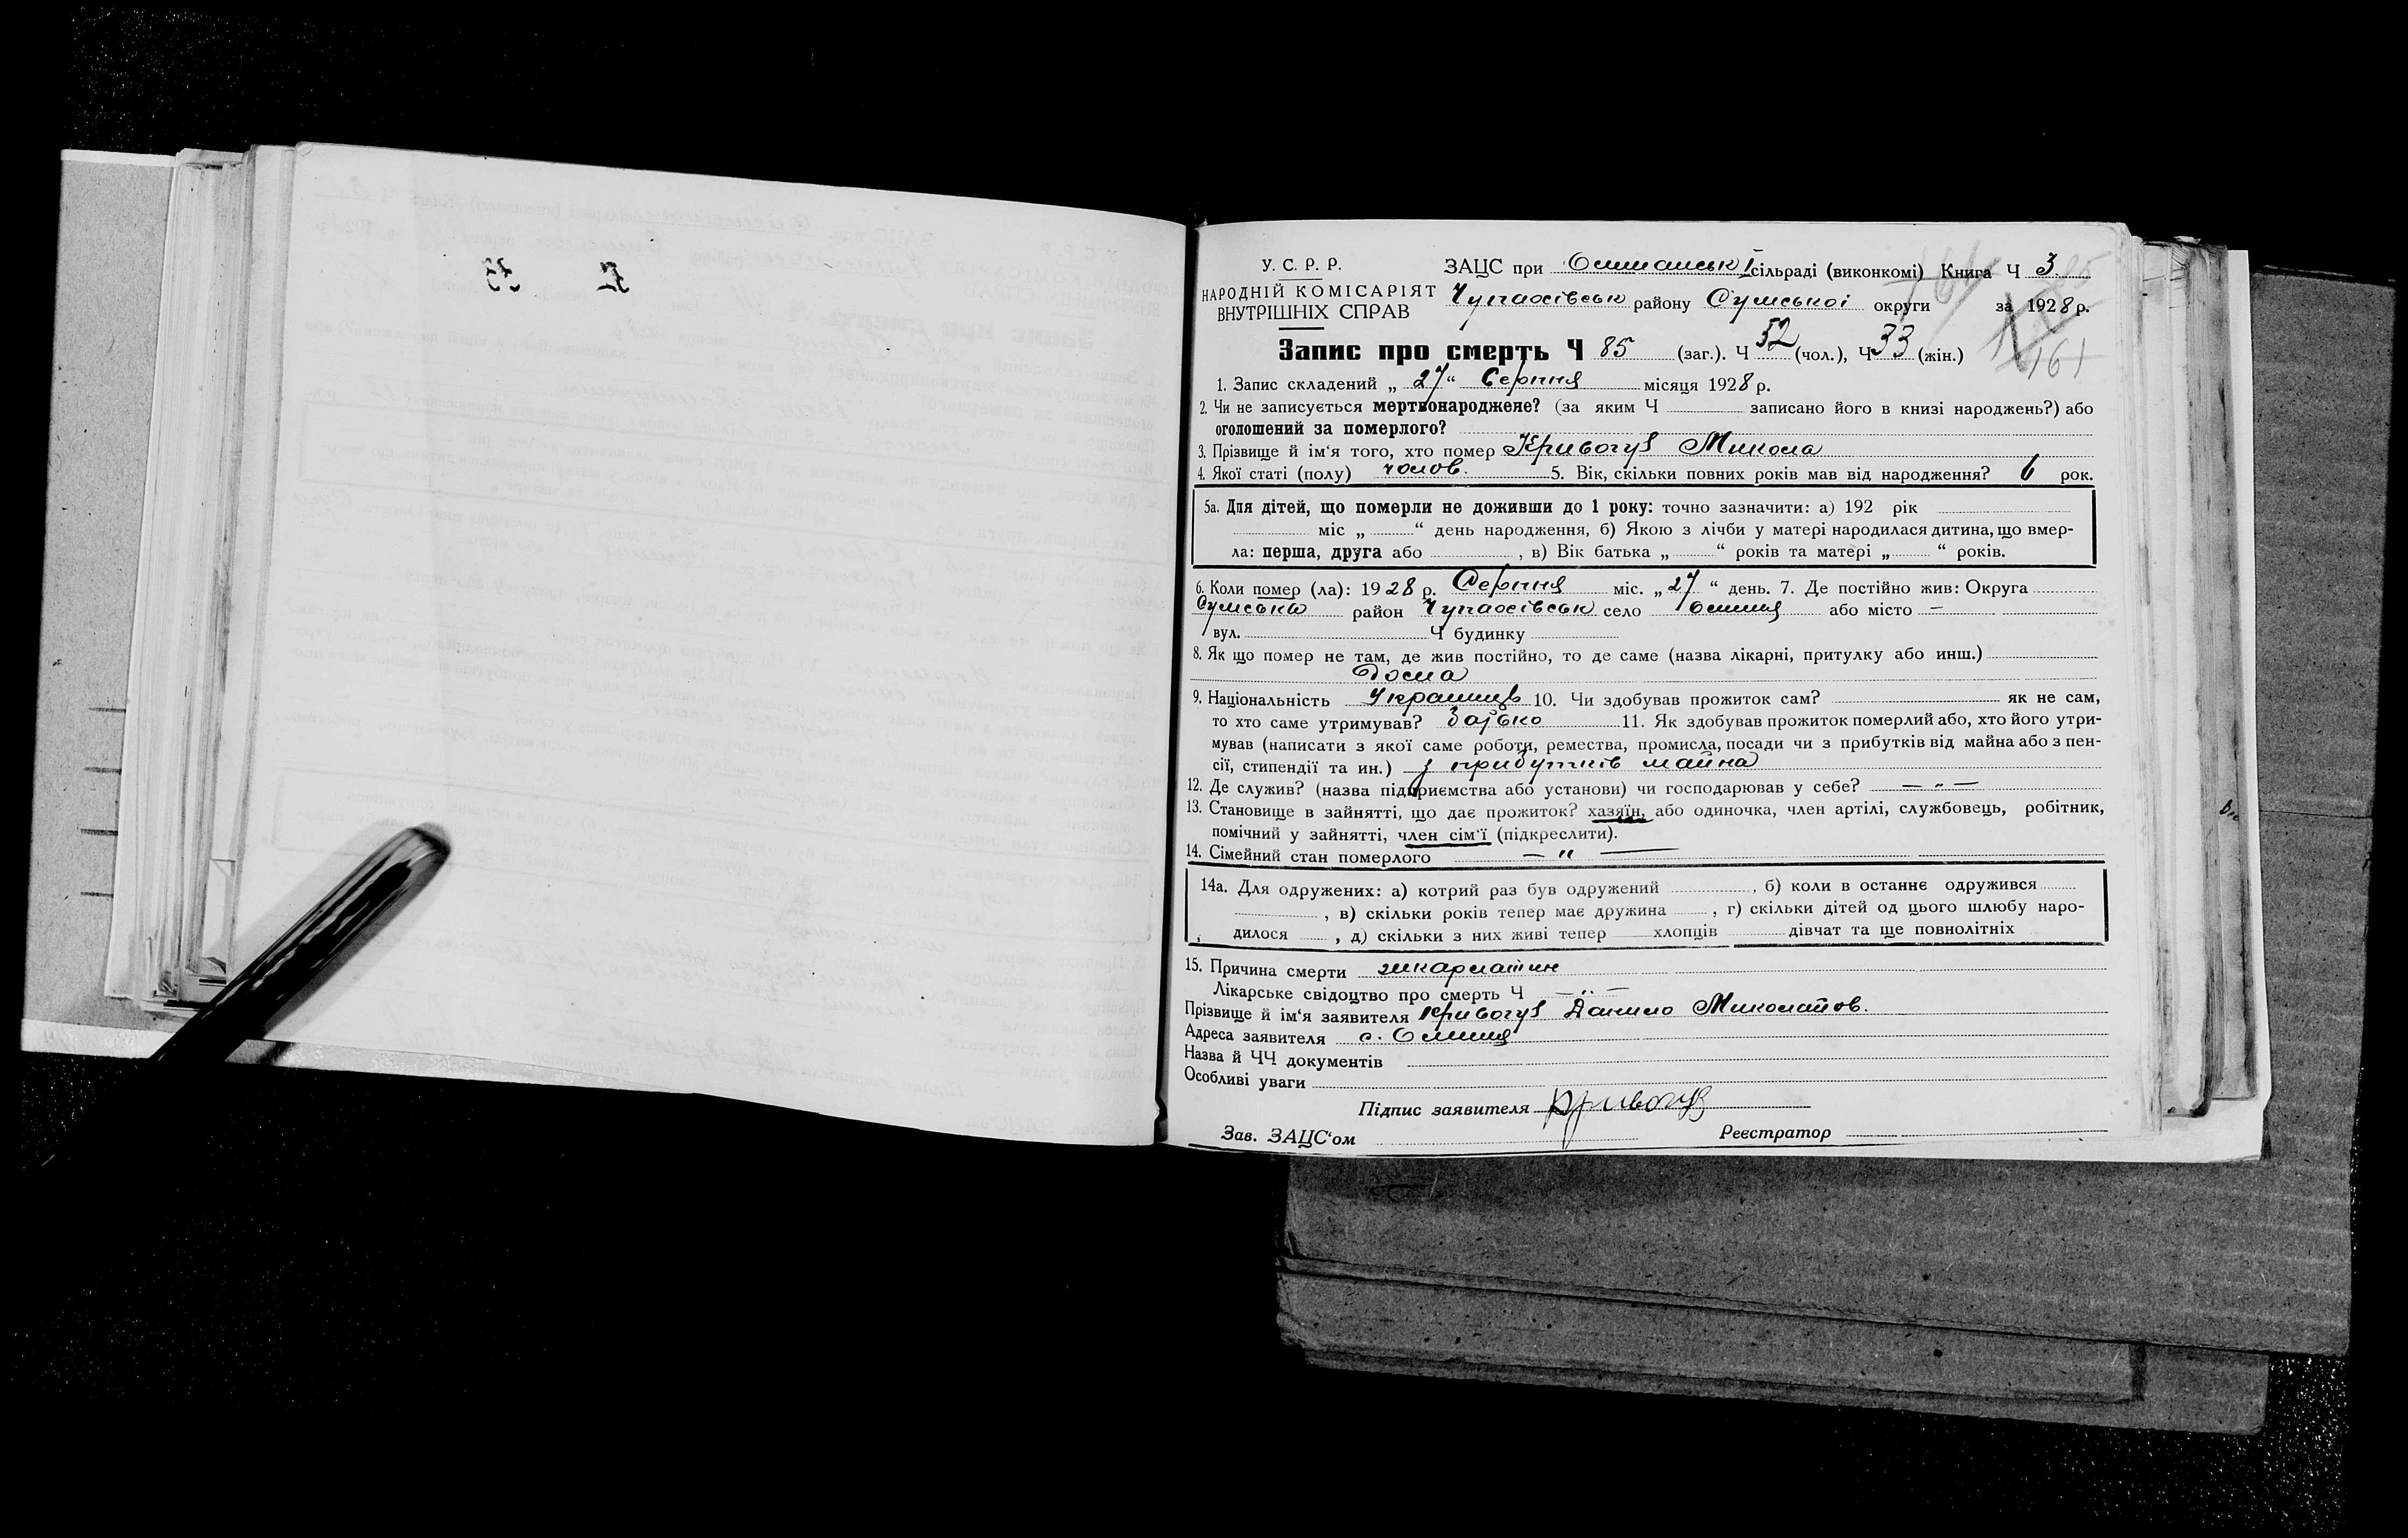 У. С. Р. Р.
НАРОДНІЙ КОМІСАРІЯТ
ВНУТРІШНІХ СПРАВ
ЗАЦС при сільраді (виконкомі) Книга Ч 3
Чупахівськ району Сумської округи за 1928 р.
161
Запис про смерть Ч 85 (заг.). Ч 52 (чол.), Ч 33 (жін.)
1. Запис складений „ 27 “ Серпня місяця 1928 р.
2. Чи не записується мертвонароджене? (за яким Ч записано його в книзі народжень?) або
оголошений за померлого?
3. Прізвище й ім‘я того, хто помер Кривогуз Микола
4. Якої статі (полу) чолов. 5. Вік, скільки повних років мав від народження? 6 рок.
5а. Для дітей, що померли не доживши до 1 року: точно зазначити: а) 192 рік
міс „ “ день народження, б) Якою з лічби у матері народилася дитина, що вмер-
ла: перша, друга або , в) Вік батька „ “ років та матері „ “ років.
6. Коли помер (ла): 1928 р. Серпня міс. „ 27 “ день. 7. Де постійно жив: Округа
Сумська район Чупахівськ село або місто —
вул. Ч будинку
8. Як що помер не там, де жив постійно, то де саме (назва лікарні, притулку або инш.)
Дома
9. Національність Українець 10. Чи здобував прожиток сам? як не сам,
то хто саме утримував? Батько 11. Як здобував прожиток померлий або, хто його утри-
мував (написати з якої саме роботи, ремества, промисла, посади чи з прибутків від майна або з пен-
сії, стипендії та ин.) з прибутків майна
12. Де служив? (назва підприємства або установи) чи господарював у себе? — „ —
13. Становище в зайнятті, що дає прожиток? хазяїн, або одиночка, член артілі, службовець, робітник,
помічний у зайнятті, член сім‘ї (підкреслити).
14. Сімейний стан померлого — „ —
14а. Для одружених: а) котрий раз був одружений , б) коли в останнє одружився
, в) скільки років тепер має дружина , г) скільки дітей од цього шлюбу наро-
дилося , д) скільки з них живі тепер хлопців дівчат та ще повнолітніх
15. Причина смерти шкарлатин
Лікарське свідоцтво про смерть Ч — „ —
Прізвище й ім‘я заявителя Кривогуз Данило Миколайов.
Адреса заявителя с.
Назва й ЧЧ документів
Особливі уваги
Підпис заявителя Кривогуз
Зав. ЗАЦС‘ом Реєстратор